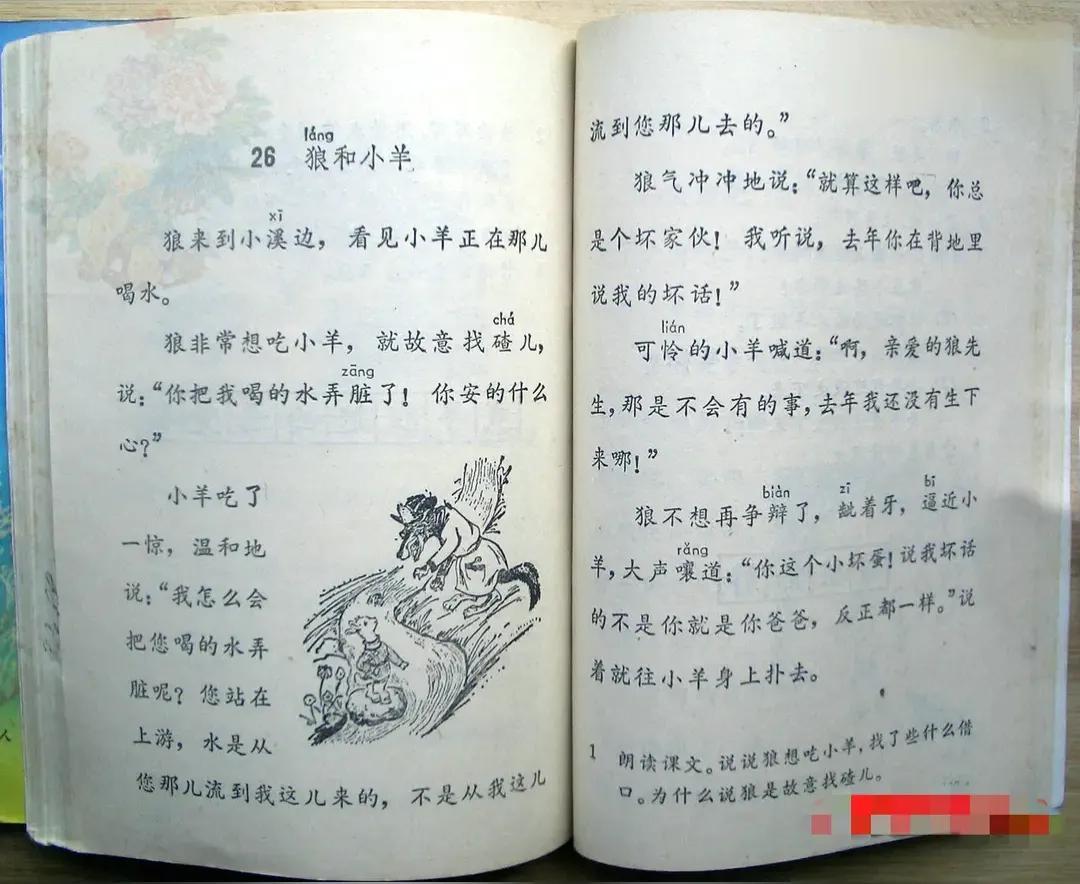 láng
26 狼和小羊
xī
狼来到小溪边，看见小羊正在那儿
喝水。
chá
狼非常想吃小羊，就故意找碴儿，
zāng
说：“你把我喝的水弄脏了！你安的什么
心？”
小羊吃了
一惊，温和地
说：“我怎么会
把您喝的水弄
脏呢？您站在
上游，水是从
您那儿流到我这儿来的，不是从我这儿
流到您那儿去的。”
狼气冲冲地说：“就算这样吧，你总
是个坏家伙！我听说，去年你在背地里
说我的坏话！”
lián
可怜的小羊喊道：“啊，亲爱的狼先
生，那是不会有的事，去年我还没有生下
来哪！”
biàn zī bī
狼不想再争辩了，龇着牙，逼近小
rǎng
羊，大声嚷道：“你这个小坏蛋！说我坏话
的不是你就是你爸爸，反正都一样。”说
着就往小羊身上扑去。
1 朗读课文。说说狼想吃小羊，找了些什么借
口。为什么说狼是故意找碴儿。
人